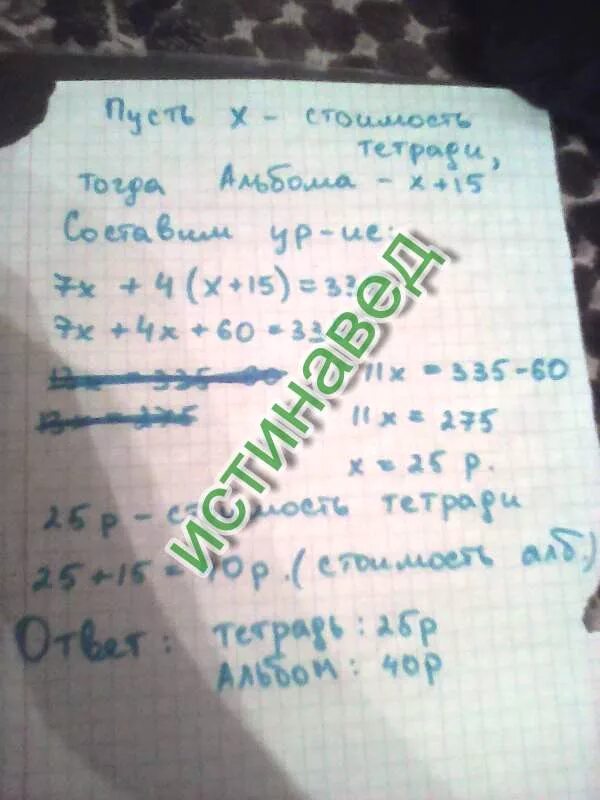 Пусть х - стоимость
тетради,
тогда Альбома - х+15
Составим ур-ие:
7х + 4(х+15)=33
7х+4х+60=33
11х = 335-60
11х = 275
х = 25 р.
25р - стоимость тетради
25+15=40р. (стоимость алб.)
Ответ: тетрадь: 25р
Альбом: 40р
истинавед